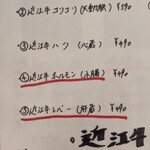 ②近江牛コリコリ(大動脈) ¥590
③近江牛ハツ(心臓) ¥490
④近江牛ホルモン(小腸) ¥490
⑤近江牛レバー(肝臓) ¥490
近江牛